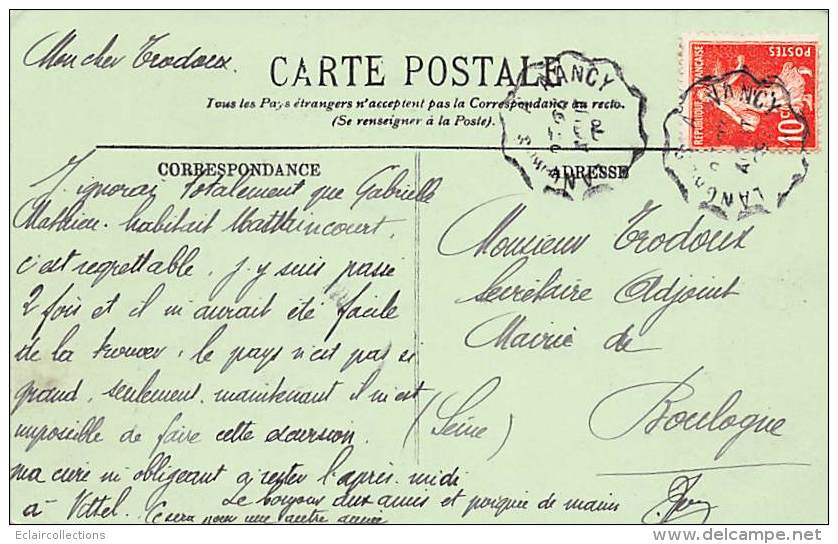 Mon cher Trodoux.
CARTE POSTALE
Tous les Pays étrangers n'acceptent pas la Correspondance au recto.
(Se renseigner à la Poste).
CORRESPONDANCE
J'ignorais totalement que Gabrielle
Mathieu habitait Mattaincourt,
c'est regrettable, j'y suis passé
2 fois et il m'aurait été facile
de la trouver, le pays n'est pas si
grand, seulement maintenant il m'est
impossible de faire cette excursion
ma cure m'obligeant à rester l'après-midi
à Vittel.
Le bonjour aux amis et poignée de mains
Ce sera pour une autre année
ADRESSE
Monsieur Trodoux
Secrétaire Adjoint
Mairie de
Boulogne
(Seine)
NANCY
NANCY
POSTES
REPUBLIQUE FRANÇAISE
10c
Eclaircollections